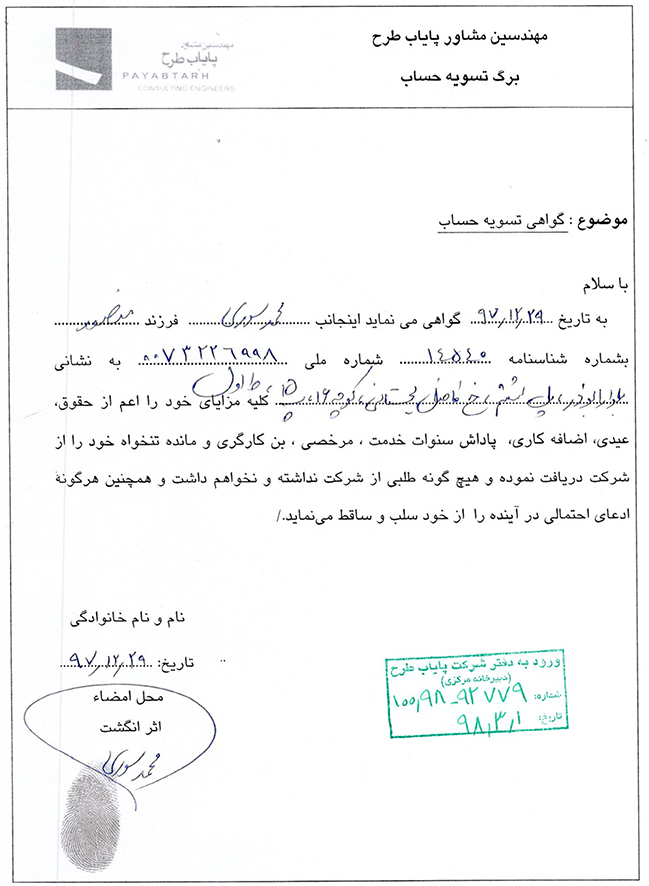 مهندسین مشاور پایاب طرح
برگ تسویه حساب
مهندسین مشاور
پایاب طرح
PAYABTARH
CONSULTING ENGINEERS
موضوع : گواهی تسویه حساب
با سلام
به تاریخ ۹۷/۱۲/۲۹ گواهی می نماید اینجانب محمد سوری فرزند منصور
بشماره شناسنامه ۱۴۵۴۰ شماره ملی ۰۰۷۳۲۲۶۹۹۸ به نشانی
ابوذر، پل ، خ ، کوچه ۱۶، پ ۱۵، ط اول کلیه مزایای خود را اعم از حقوق،
عیدی، اضافه کاری، پاداش سنوات خدمت ، مرخصی ، بن کارگری و مانده تنخواه خود را از
شرکت دریافت نموده و هیچ گونه طلبی از شرکت نداشته و نخواهم داشت و همچنین هرگونهٔ
ادعای احتمالی در آینده را از خود سلب و ساقط می‌نماید./
نام و نام خانوادگی
تاریخ: ۹۷/۱۲/۲۹
محل امضاء
اثر انگشت
محمد سوری
ورود به دفتر شرکت پایاب طرح
(دبیرخانه مرکزی)
شماره: ۱۰۰,۹۸-۹۲۷۷۹
تاریخ: ۹۸,۳,۱